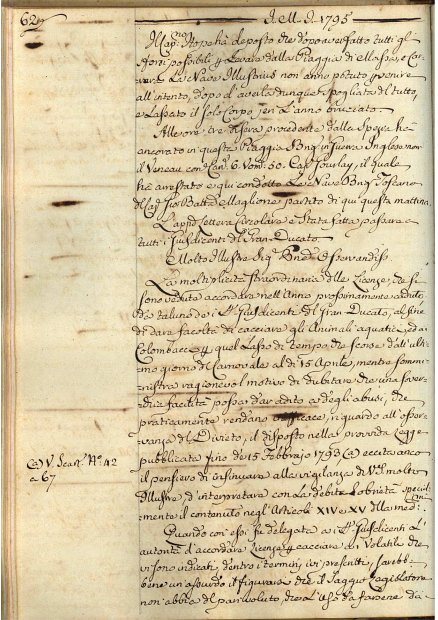 62
A. M. D. 1795
Il Cap.no Stopehà deposto che dopo aver fatto tutti gl'
sforzi possibili p levare dalla Piaggia di Massa, e Car
rara La Nave Illustrius non anno potuto pvenire
all'intento, e dopo d'averla dunque spogliata del tutto,
e Lassato il solo Corpo, jeri L'anno bruciato.
Alle ore tre di sera procedente dalla Spezia hà
ancorato in questa Piaggia Brig.no in Guerra Inglese no
il Veneau con Can. 6. Uom. 50. Cap. Foulay, il quale
hà arrestato e qui condotto La Nave Brig.no Toscano
del Cap. Gio: Batta Maglione partito di qui questa mattina.
La pnte Lettera Circolare è Stata fatta passare a
tutti i Giusdicenti del Gran-Ducato.
Molto Illustre Sig.
La moltiplicità straordinaria delle Licenze, che si
sono vedute accordare nell'Anno prossimamente caduto
da taluno de i Giusdicenti del Gran Ducato, al fine
di dare facoltà di cacciare gli Animali aquatici, ed i
Colombacci p quel Lasso di tempo, che scorse dall'ulti
mo giorno di Carnevale al dì 15 Aprile, mentre sommi
nistra ragionevol motivo di dubitare che una sover
chia facilità possa dar adito a degli abusi, che
praticamente rendano inefficace, riguardo all'osser
vanza del Divieto, il disposto nella provvida Legge
pubblicata fino de 15 Febbrajo 1793 (a) eccita anco
il pensiero di insinuare alla vigilanza di V.S. molto
Illustre d'interpretare con la debita sobrietà special
mente il contenuto negli Articoli XIV e XV della med.
Quando con essi fu delegata a i Giusdicenti L'
autorità d'accordare Licenze p cacciare dei Volatili che
vi sono indicati, dentro i termini ivi prescritti, sareb
bene un assurdo il figurarsi che il Saggio Legislatore
non abbia del pari voluto, che L'uso da farsene da
(a) V. Scart. N.o 42
a 67